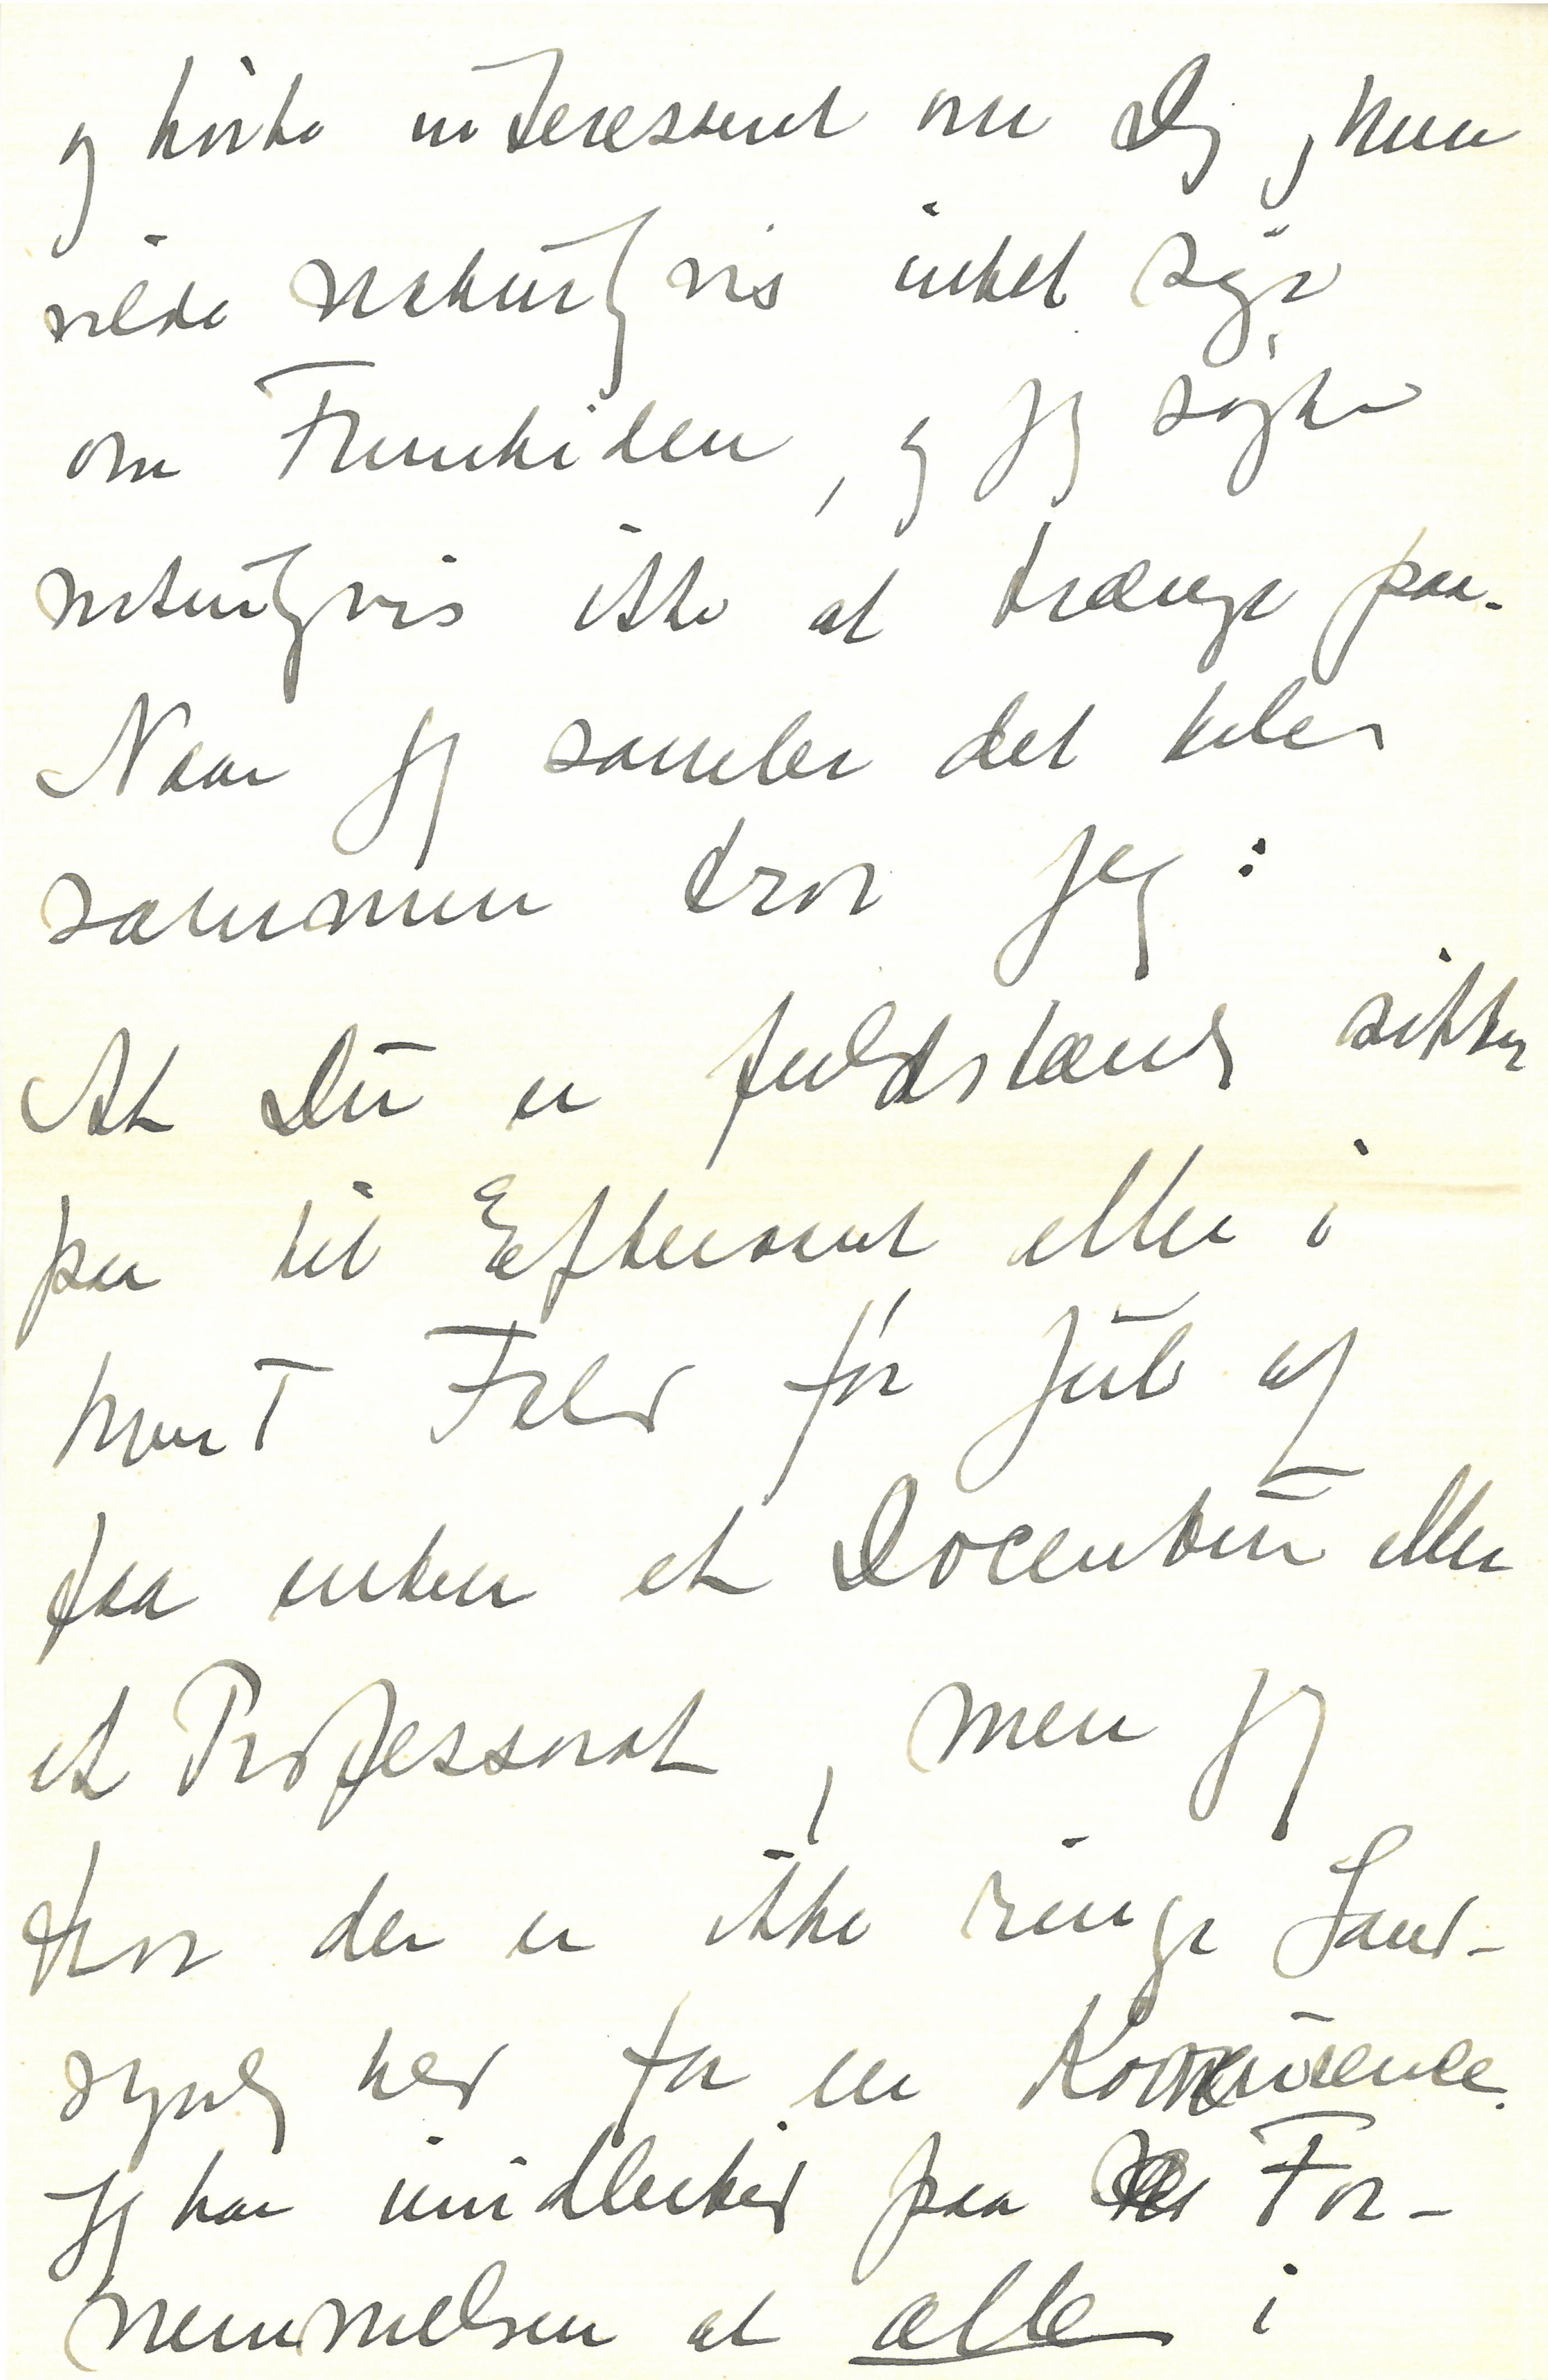 og hørte interesseret om Dig, men
vilde naturligvis intet sige
om Fremtiden, og jeg søgte
naturligvis ikke at trænge paa.
Naar jeg samler det hele
sammen tror jeg:
At Du er fuldstændig sikker
paa til Efteraaret eller i
hvert Fald før Jul at
faa enten et Docentur eller
et Professorat, men jeg
tror der er ikke ringe Sand-
synlighed for en Konkurrence.
Jeg har imidlertid paa For-
nemmelsen at alle i